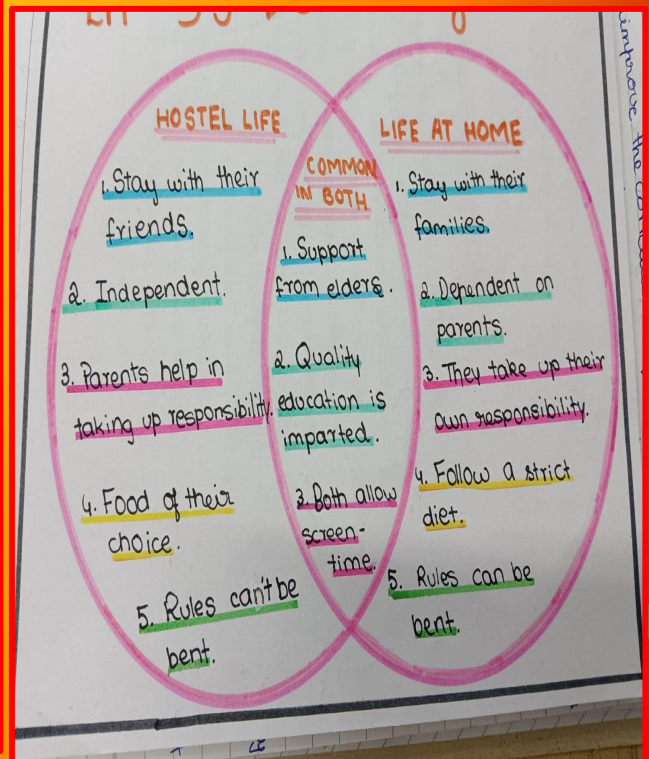 HOSTEL LIFE
1. Stay with their
friends.
2. Independent.
3. Parents help in
taking up responsibility.
4. Food of their
choice.
5. Rules can't be
bent.
COMMON
IN BOTH
1. Support
from elders.
2. Quality
education is
imparted.
3. Both allow
screen-
time.
LIFE AT HOME
1. Stay with their
families.
2. Dependent on
parents.
3. They take up their
own responsibility.
4. Follow a strict
diet.
5. Rules can be
bent.
improve the